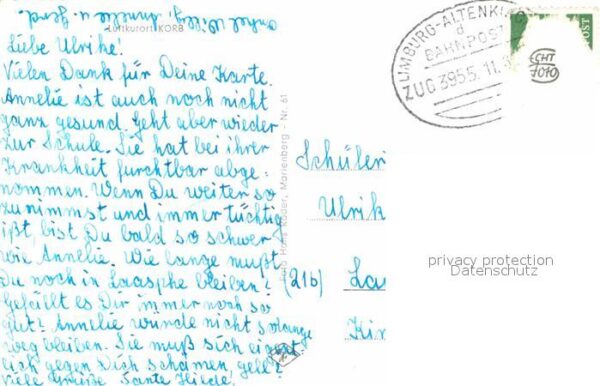 Luftkurort KORB
Liebe Ulrike!
Vielen Dank für Deine Karte.
Annelie ist auch noch nicht
ganz gesund. Geht aber wieder
zur Schule. Sie hat bei ihrer
Krankheit furchtbar abge-
nommen. Wenn Du weiter so
zunimmst und immer tüchtig
ißt, bist Du bald so schwer
wie Annelie. Wie lange mußt
Du noch in Laasphe bleiben?
Gefällt es Dir immer noch so
gut? Annelie würde nicht solange
weg bleiben. Sie muß sich eigent
lich gegen Dich schämen, gell?
Viele Grüße Tante Hilde.
Foto Hans Röder, Marienberg - Nr. 61
LIMBURG-ALTENKI
d
BAHNPOST
ZUG 3955 11.
OST
ECHT
1010
Schüleri
Ulrik
(21b) Laa
Kin
privacy protection
Datenschutz